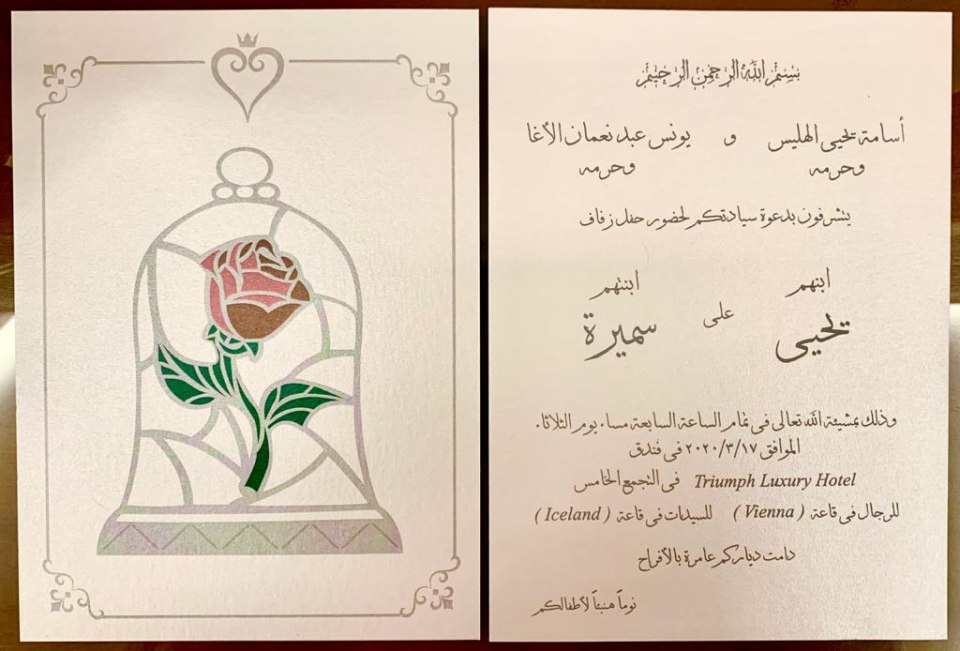 بسم الله الرحمن الرحيم
أسامة يحيى الهليس و يونس عبد نعمان الأغا
وحرمه وحرمه
يتشرفون بدعوة سيادتكم لحضور حفل زفاف
ابنهم ابنتهم
يحيى على سميرة
وذلك بمشيئة الله تعالى فى تمام الساعة السابعة مساء يوم الثلاثاء
الموافق ٢٠٢٠/٣/١٧ فى فندق
Triumph Luxury Hotel فى التجمع الخامس
للرجال فى قاعة ( Vienna ) للسيدات فى قاعة ( Iceland )
دامت دياركم عامرة بالأفراح
نوماً هنيئاً لأطفالكم